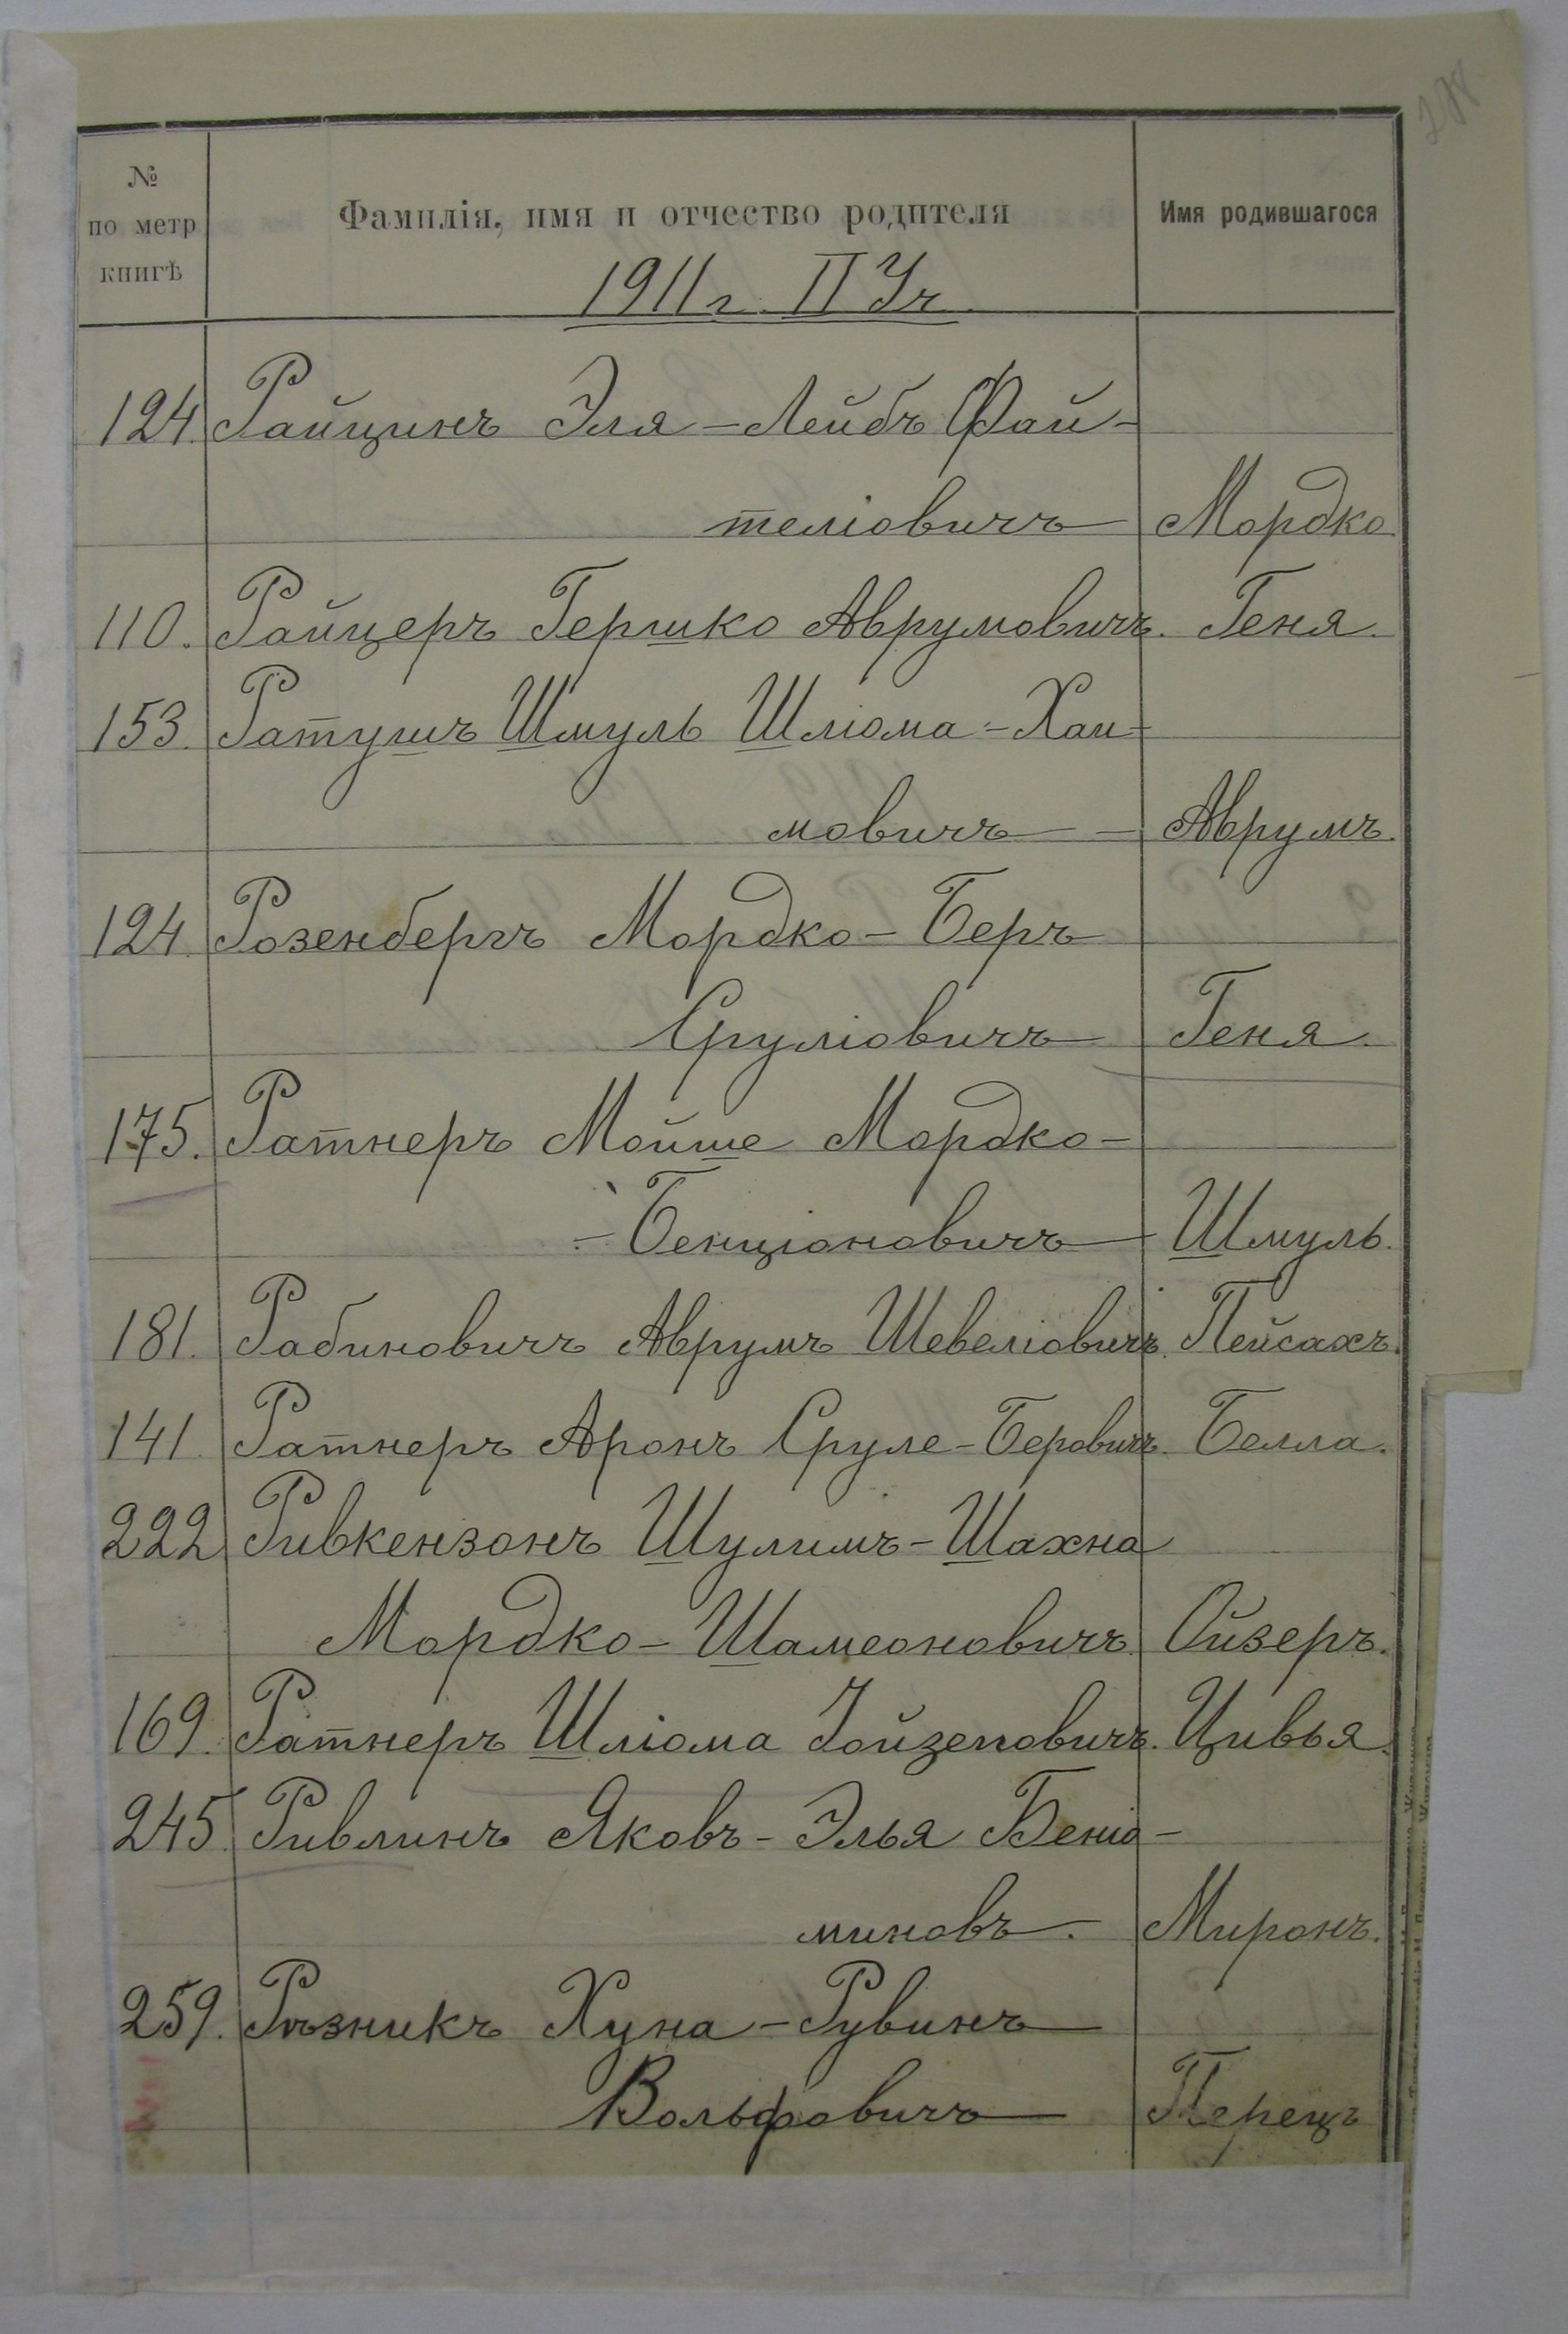 № по метр книгѣ
Фамилія, имя и отчество родителя
Имя родившагося
1911 г. II Уч.
124. Райцинъ Эля-Лейбъ Фай-
теліовичъ Мордко
110. Райцеръ Гершко Аврумовичъ. Геня.
153. Ратушъ Шмуль Шліома-Хаи-
мовичъ — Аврумъ.
124 Розенбергъ Мордко-Беръ
Сруліовичъ Геня.
175. Ратнеръ Мойше Мордко-
-Бенціоновичъ Шмуль.
181. Рабиновичъ Аврумъ Шевеліовичъ. Пейсахъ.
141. Ратнеръ Аронъ Сруле-Беровичъ. Белла.
222 Ривкензонъ Шулимъ-Шахна
Мордко-Шамеоновичъ. Ойзеръ.
169. Ратнеръ Шліома Іойзеповичъ. Цивья.
245. Ривлинъ Яковъ-Элья Беніа-
миновъ. Миронъ.
259. Рѣзникъ Хуна-Рувинъ
Вольфовичъ Перецъ